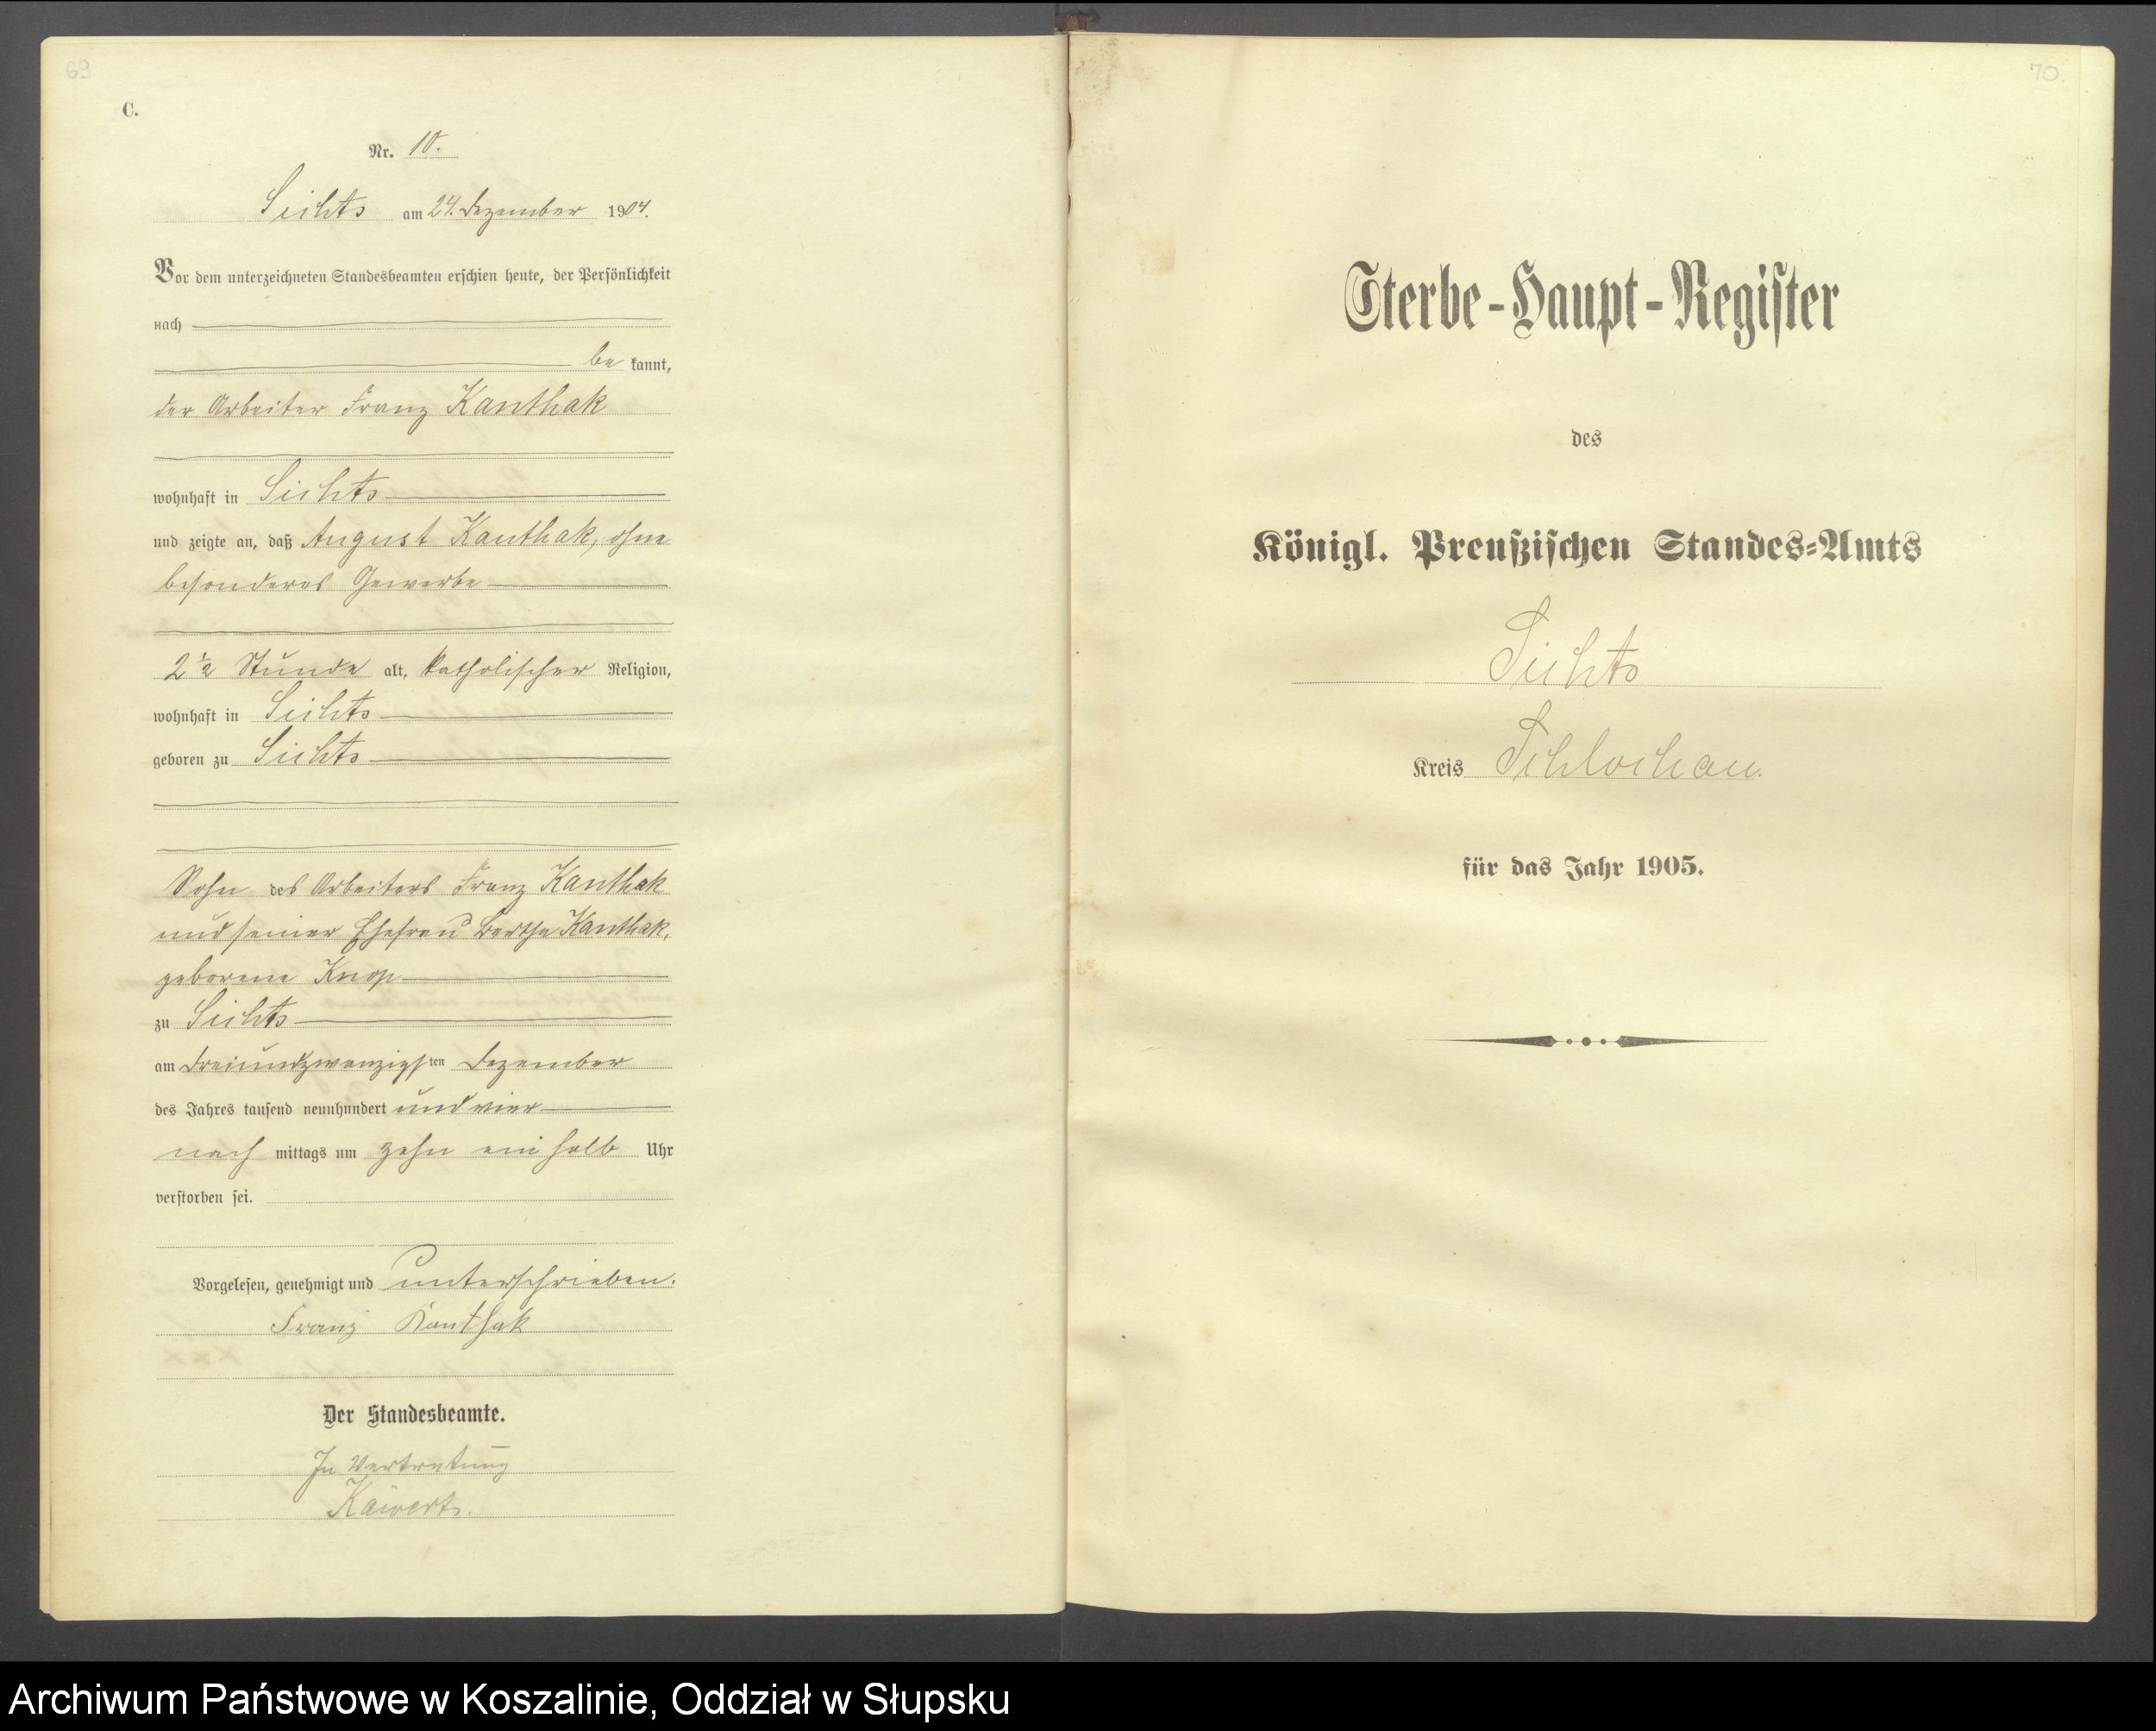 69
C.
Nr. 10.
Sichts am 24. Dezember 1904.
Vor dem unterzeichneten Standesbeamten erschien heute, der Persönlichkeit
nach
be kannt,
der Arbeiter Franz Kanthak
wohnhaft in Sichts
und zeigte an, daß August Kanthak, ohne
besonderes Gewerbe
2 1/2 Stunde alt, katholischer Religion,
wohnhaft in Sichts
geboren zu Sichts
Sohn des Arbeiters Franz Kanthak
und seiner Ehefrau Bertha Kanthak,
geborene Knop
zu Sichts
am dreiundzwanzigsten Dezember
des Jahres tausend neunhundert und vier
nach mittags um zehn ein halb Uhr
verstorben sei.
Vorgelesen, genehmigt und unterschrieben.
Franz Kanthak
Der Standesbeamte.
In Vertretung
70.
Sterbe-Haupt-Register
des
Königl. Preußischen Standes-Amts
Sichts
Kreis Schlochau.
für das Jahr 1905.
Archiwum Państwowe w Koszalinie, Oddział w Słupsku